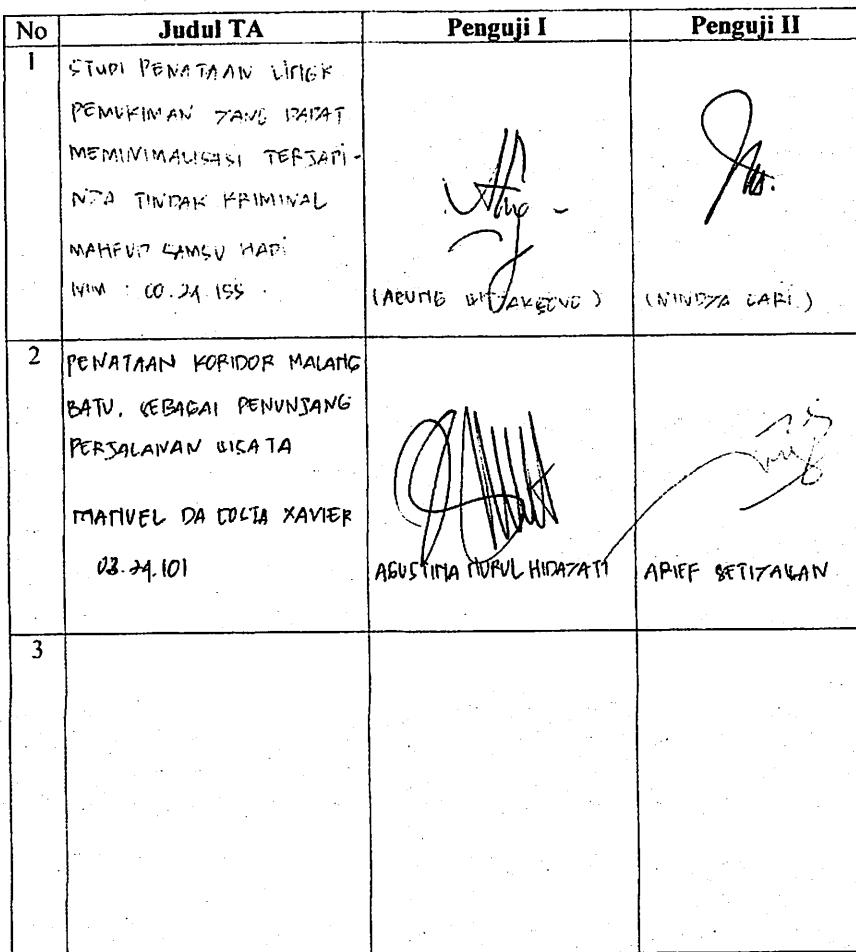 No Judul TA Penguji I Penguji II
1
STUDI PENATAAN LINGK
PEMUKIMAN YANG DAPAT
MEMINIMALISASI TERJADI-
NYA TINDAK KRIMINAL
MAHFUD SAMSU HADI
NIM : 00.24.155
(AGUNG WITJAKSONO) (NINDYA SARI)
2
PENATAAN KORIDOR MALANG
BATU, SEBAGAI PENUNJANG
PERJALANAN WISATA
MANUEL DA COSTA XAVIER
03.24.101
AGUSTINA NURUL HIDAYATI ARIEF SETIYAWAN
3